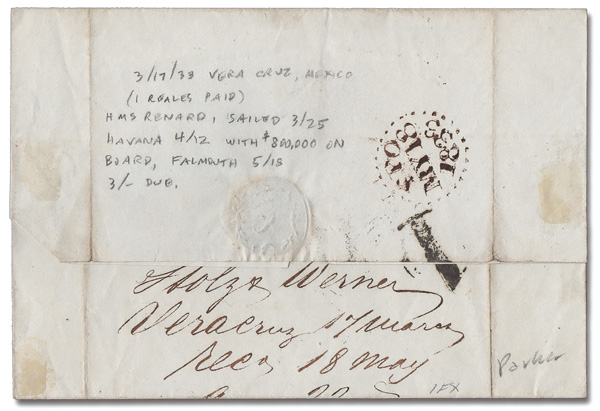 3/17/38 VERA CRUZ, MEXICO
(1 REALES PAID)
HMS RENARD, SAILED 3/25
HAVANA 4/12 WITH $800,000 ON
BOARD, FALMOUTH 5/18
3/- DUE.
1
Stolze Werner
Veracruz 17 Marzo
Rec. 18 May
1FX
Parker